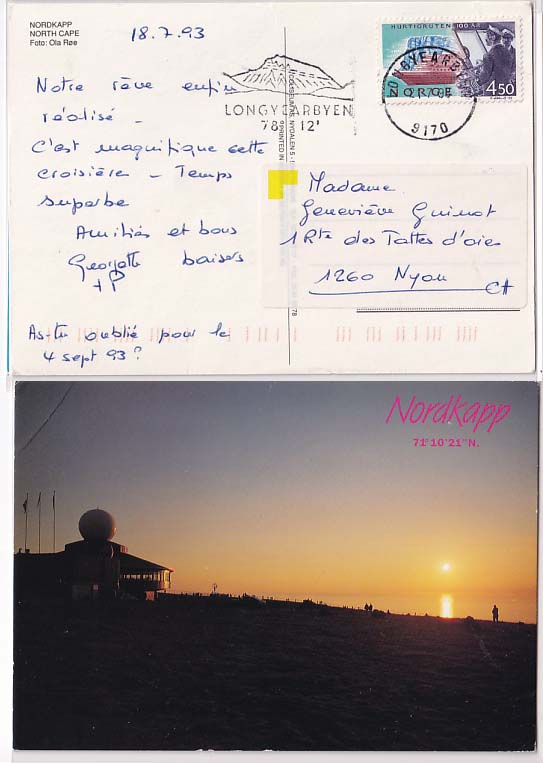 NORDKAPP
NORTH CAPE
Foto: Ola Røe
18.7.93
HURTIGRUTEN 100 ÅR
NORGE
450
LONGYEARBYEN
9170
LONGYEARBYEN
78° 12'
Notre rêve enfin
réalisé -
C'est magnifique cette
croisière - Temps
superbe
Amitiés et bons
baisers
Georgette
+ P
As-tu oublié pour le
4 sept 93?
Madame
Geneviève Guinot
1 Rte des Tattes d'oies
1260 Nyon
CH
PRINTED IN
Nordkapp
71°10'21"N.